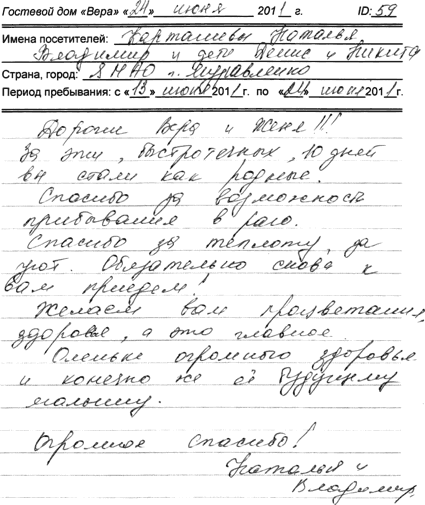 Гостевой дом «Вера» «24» июня 2011 г. ID: 59
Имена посетителей: Карташевы Наталья,
Владимир и дети Денис и Никита
Страна, город: ЯНАО г. Муравленко
Период пребывания: с «13» июня 2011 г. по «24» июня 2011 г.
Дорогие Вера и Женя!!!
За эти, быстротечных, 10 дней
вы стали как родные.
Спасибо за возможность
прибывания в раю.
Спасибо за теплоту, за
уют. Обязательно снова к
вам приедем!
Желаем вам процветания,
здоровье, а это главное.
Оленьке огромного здоровья
и конечно же её будущему
малышу.
Огромное спасибо!
Наталья и
Владимир.